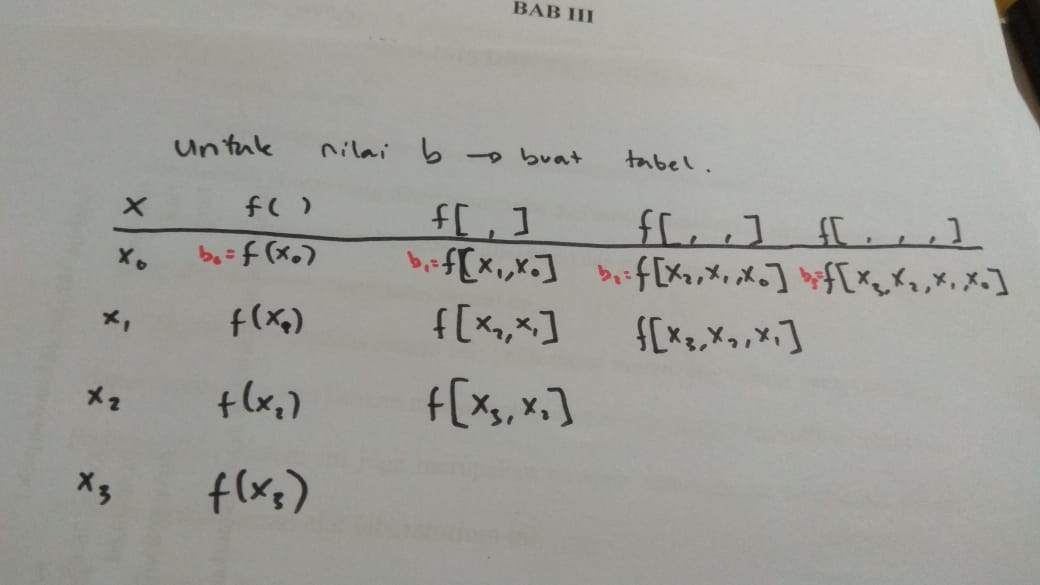 BAB III
Untuk nilai b → buat tabel.
x f( ) f[ , ] f[ , , ] f[ , , , ]
x₀ b₀= f(x₀) b₁= f[x₁,x₀] b₂= f[x₂,x₁,x₀] b₃= f[x₃,x₂,x₁,x₀]
x₁ f(x₁) f[x₂,x₁] f[x₃,x₂,x₁]
x₂ f(x₂) f[x₃,x₂]
x₃ f(x₃)